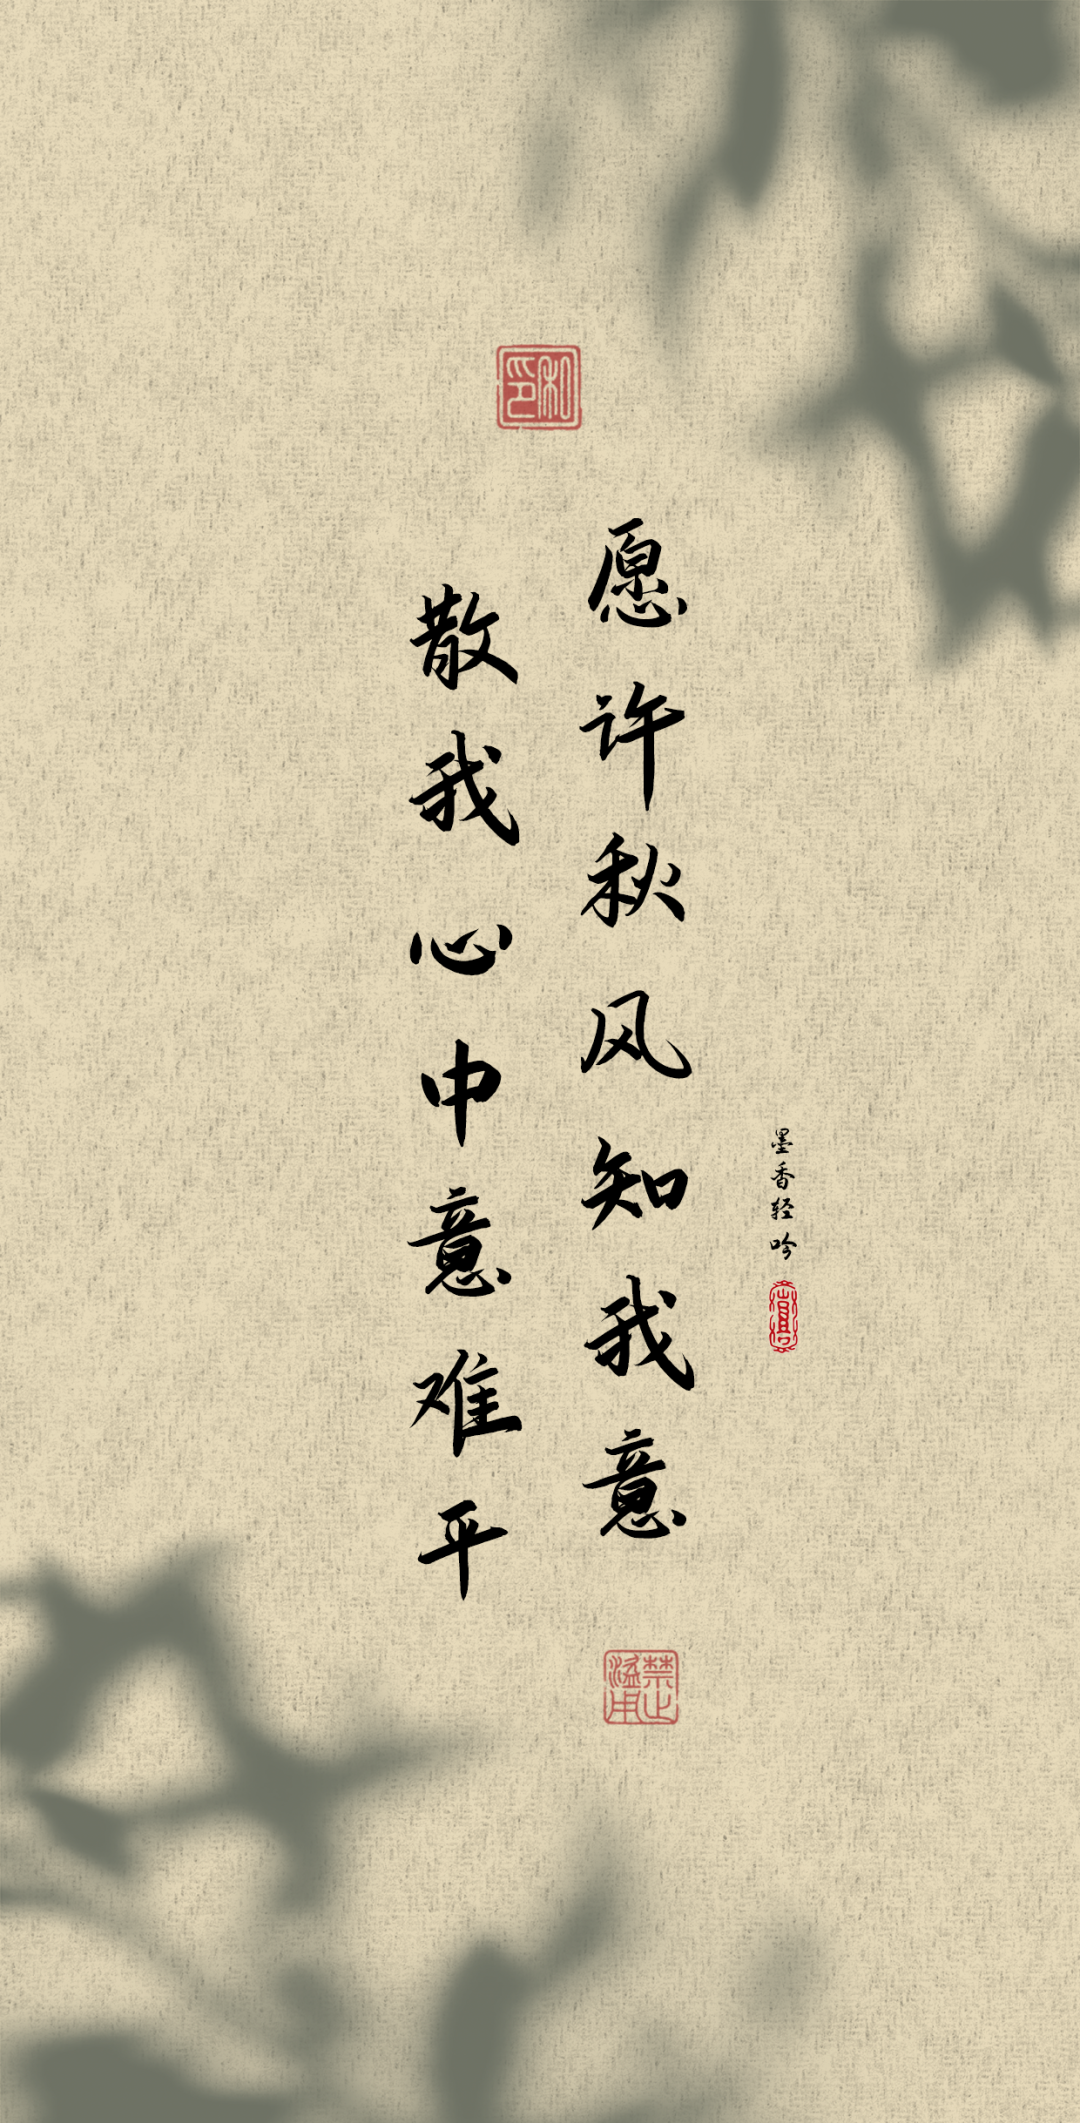 愿许秋风知我意
散我心中意难平
墨香轻吟
私印
禁止
滥用